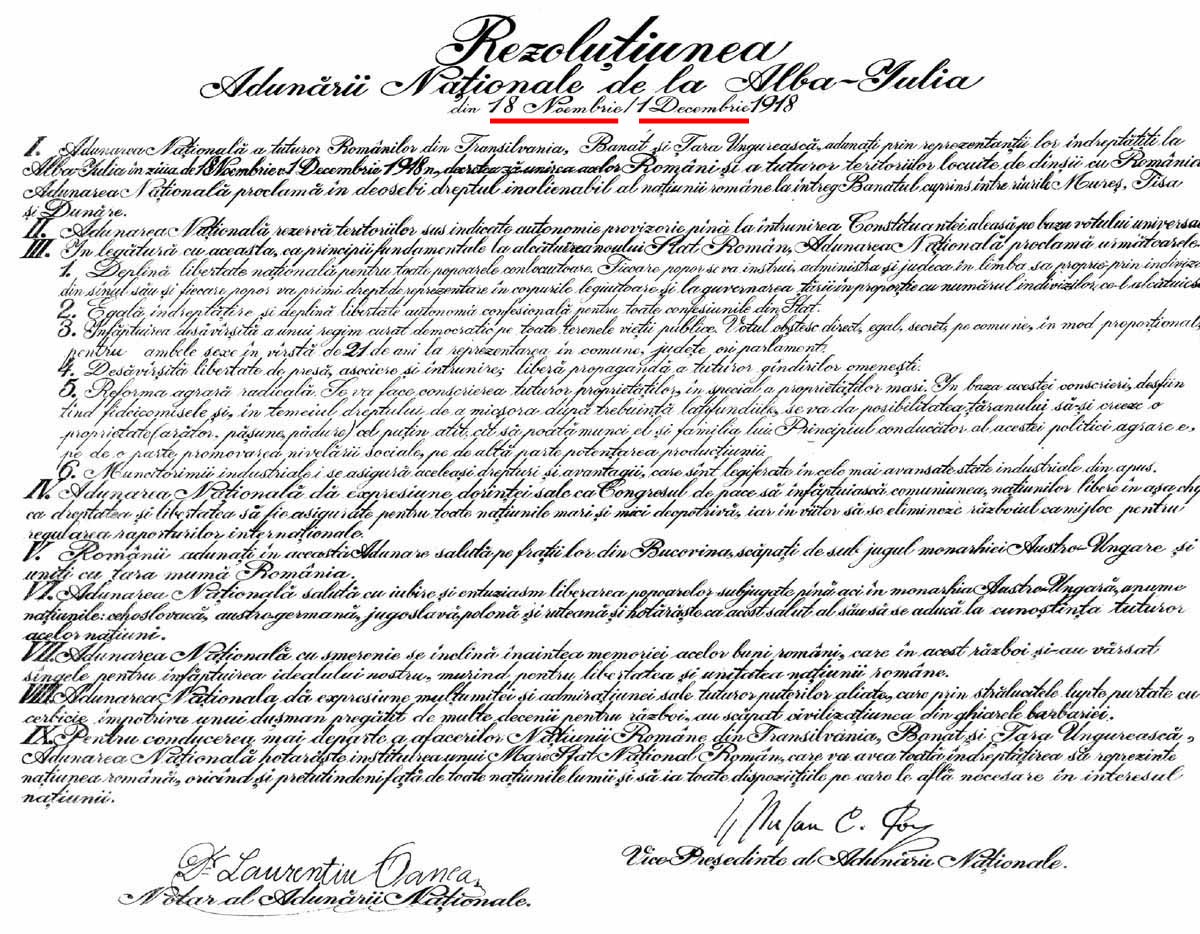 Rezoluțiunea
Adunării Naționale de la Alba-Iulia
din 18 Noembrie/1 Decembrie 1918
I. Adunarea Națională a tuturor Românilor din Transilvania, Banat și Țara Ungurească, adunați prin reprezentanții lor îndreptățiți la
Alba-Iulia în ziua de 18 Noembrie 1 Decembrie 1918 n., decretează unirea acelor Români și a tuturor teritoriilor locuite de dînșii cu România
Adunarea Națională proclamă în deosebi dreptul inalienabil al națiunii române la întreg Banatul cuprins între rîurile Mureș, Tisa
și Dunăre.
II. Adunarea Națională rezervă teritoriilor sus indicate autonomie provizorie pînă la întrunirea Constituantei aleasă pe baza votului universa
III. In legătură cu aceasta, ca principii fundamentale la alcătuirea noului Stat Român, Adunarea Națională proclamă următoarele
1. Deplină libertate națională pentru toate popoarele conlocuitoare. Fiecare popor se va instrui, administra și judeca în limba sa proprie prin indiviz
din sînul său și fiecare popor va primi drept de reprezentare în corpurile legiuitoare și la guvernarea țării în proporție cu numărul indivizilor, ce-l alcătuies
2. Egală îndreptățire și deplină libertate autonomă confesională pentru toate confesiunile din Stat.
3. Infăptuirea desăvîrșită a unui regim curat democratic pe toate terenele vieții publice. Votul obștesc direct, egal, secret, pe comune, în mod proporțional
pentru ambele sexe în vîrstă de 21 de ani la reprezentarea în comune, județe ori parlament.
4. Desăvîrșită libertate de presă, asociere și întrunire; liberă propagandă a tuturor gîndirilor omenești.
5. Reforma agrară radicală. Se va face conscrierea tuturor proprietăților, în special a proprietăților mari. In baza acestei conscrieri, desfiin
țînd fideicomisele și, în temeiul dreptului de a micșora după trebuință latifundiile, se va da posibilitatea țăranului să-și creeze o
proprietate (arător, pășune, pădure) cel puțin atît cît să poată munci el și familia lui. Principiul conducător al acestei politici agrare e,
pe de o parte promovarea nivelării sociale, pe de altă parte potențarea producțiunii.
6. Muncitorimii industriale i se asigură aceleași drepturi și avantagii, care sînt legiferate în cele mai avansate state industriale din apus.
IV. Adunarea Națională dă expresiune dorinței sale ca Congresul de pace să înfăptuiască comuniunea, națiunilor libere în așa chi
ca dreptatea și libertatea să fie asigurate pentru toate națiunile mari și mici deopotrivă, iar în viitor să se elimineze războiul ca mijloc pentru
regularea raporturilor internaționale.
V. Românii adunați în aceasta Adunare salută pe frații lor din Bucovina, scăpați de sub jugul monarhiei Austro-Ungare și
uniți cu țara mumă România.
VI. Adunarea Națională salută cu iubire și entuziasm liberarea popoarelor subjugate pînă aci în monarhia Austro-Ungară, anume
națiunile: cehoslovacă, austrogermană, jugoslavă, polonă și ruteană și hotărăște ca acest salut al său să se aducă la cunoștința tuturor
acelor națiuni.
VII. Adunarea Națională cu smerenie se închină înaintea memoriei acelor buni români, care în acest război și-au vărsat
sîngele pentru înfăptuirea idealului nostru, murind pentru libertatea și unitatea națiunii române.
VIII. Adunarea Naționala dă expresiune mulțumitei și admirațiunei sale tuturor puterilor aliate, care prin strălucitele lupte purtate cu
cerbicie împotriva unui dușman pregătit de multe decenii pentru război, au scăpat civilizațiunea din ghiarele barbariei.
IX. Pentru conducerea mai departe a afacerilor Națiunii Române din Transilvania, Banat și Țara Ungurească,
Adunarea Națională hotărăște instituirea unui Mare Sfat Național Român, care va avea toată îndreptățirea să reprezinte
națiunea română, oricînd și pretutindeni față de toate națiunile lumii și să ia toate dispozițiile pe care le află necesare în interesul
națiunii.
C. Pop
Vice Președinte al Adunării Naționale.
Dr. Laurențiu Oanea
Notar al Adunării Naționale.